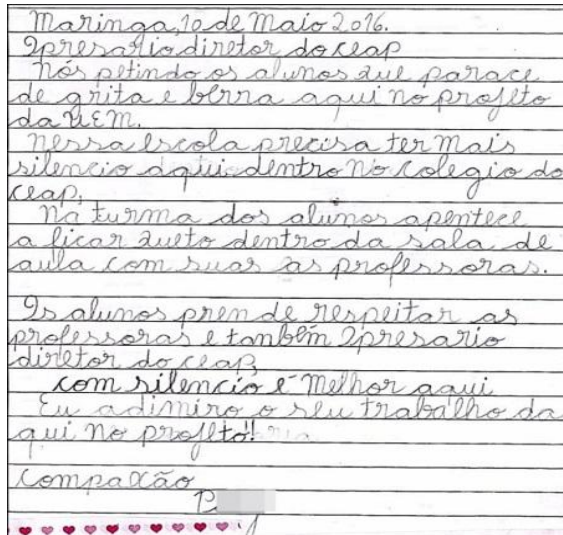 Maringa,10 de Maio 2016.
Opresario diretor do ceap
Nós petindo os alunos que parace
de grita e bérra aqui no projeto
da UEM.
Nessa escola precisa ter mais
silencio daqui dentro no colegio do
ceap,
Na turma dos alunos apentece
a ficar queto dentro da sala de
aula com suas as professoras.
Os alunos prende respeitar as
professoras e tanbêm Opresario
diretor do ceap,
com silencio é melhor aqui
Eu adimiro o seu trabalho da
qui no projeto!
Compaixão
P